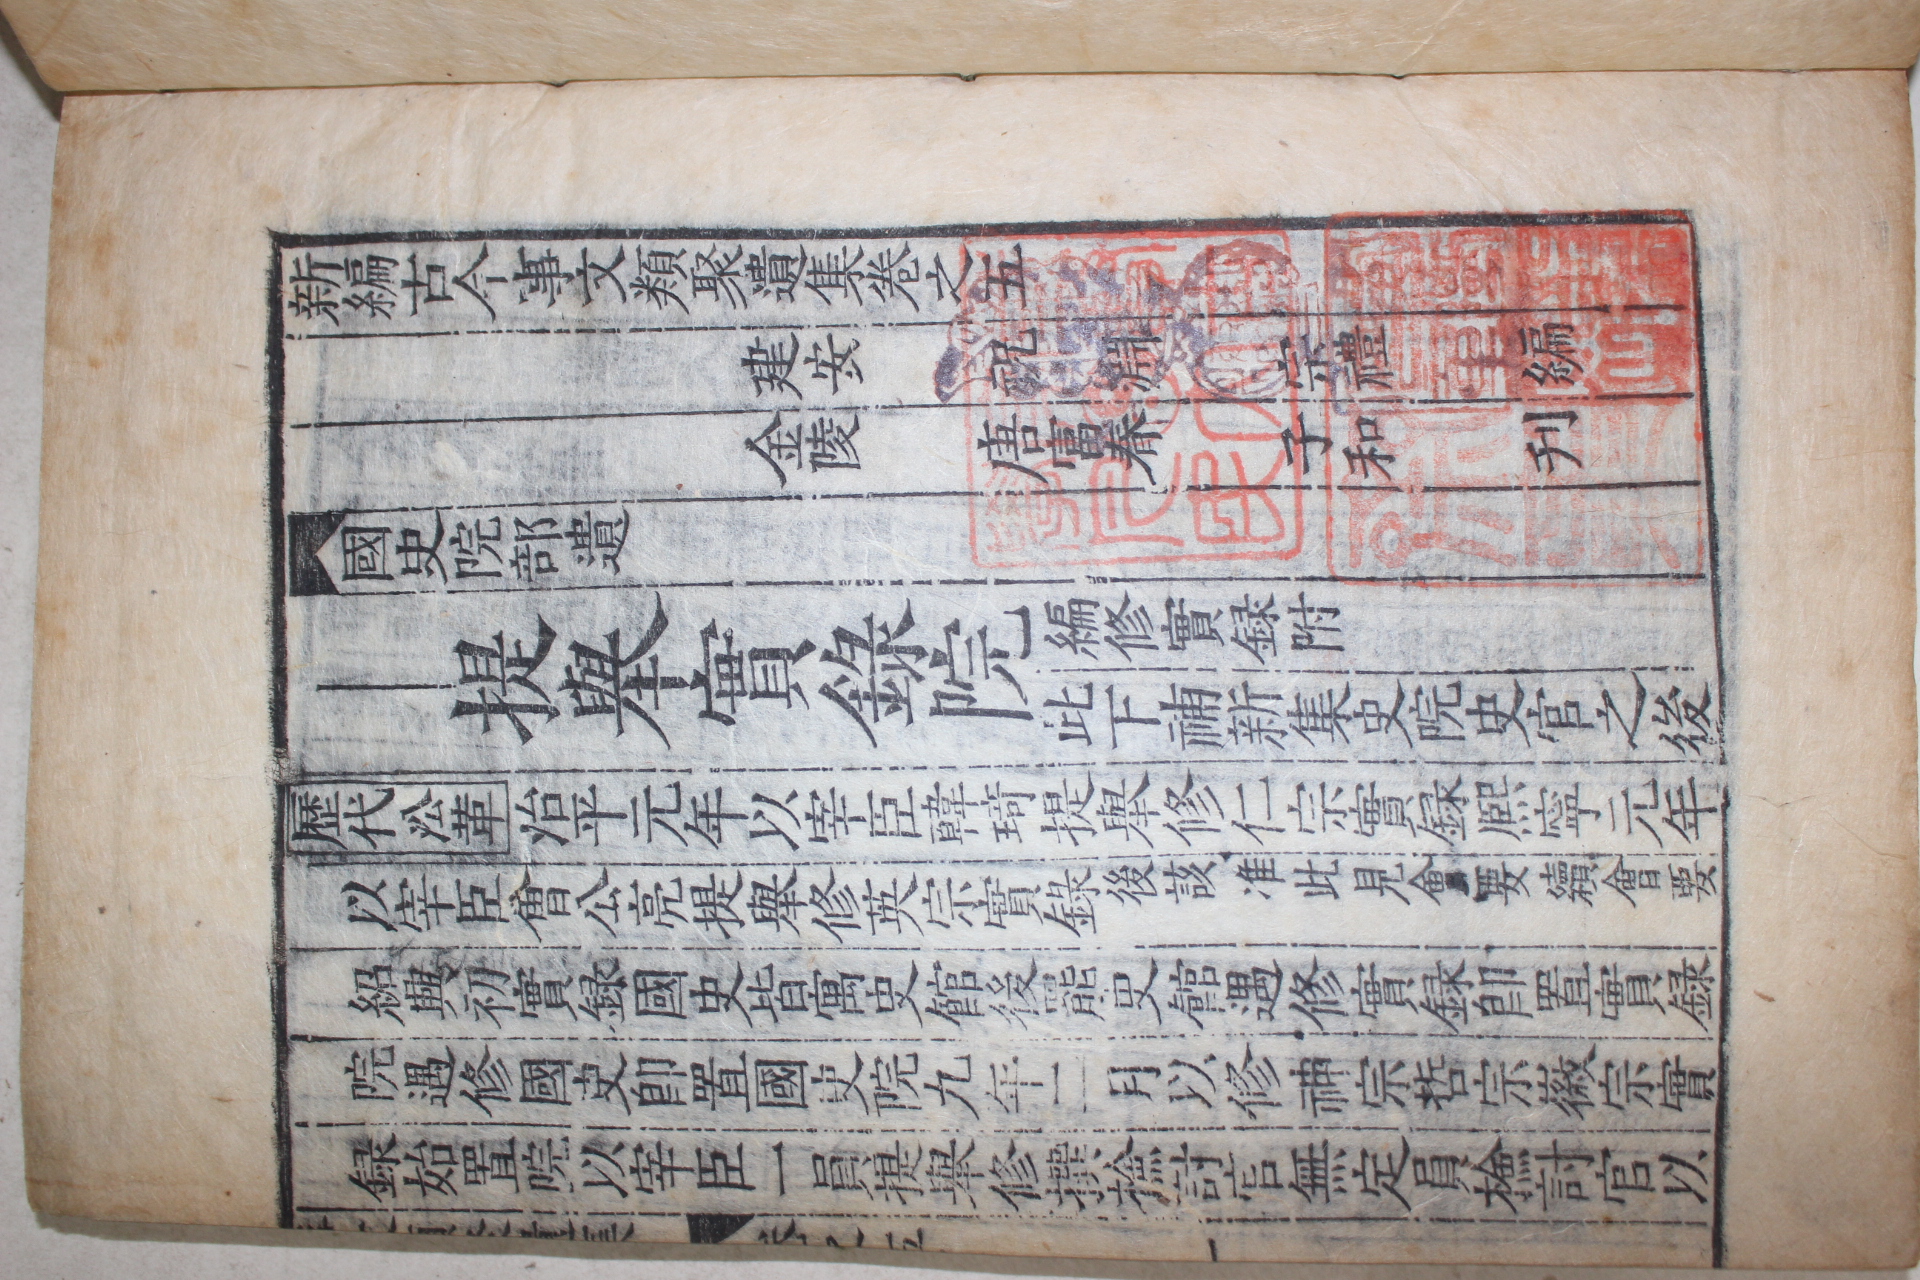 新編古今事文類聚遺集卷之五
建安 祝淵 宗禮 編
金陵 唐富春 子和 刋
國史院部遺
提舉實錄院 編修實録附
此下補新集史院史官之後
歷代沿革 治平元年以宰臣韓琦提舉修仁宗實録熙寧元年
以宰臣曾公亮提舉修英宗實錄後該准此見會要續會要
紹興初實録國史皆寓史館後罷史館遇修實録即置實録
院遇修國史即置國史院九年二月以修神宗哲宗徽宗實
録始置院以宰臣一員提舉修撰檢討官無定員檢討官以
卷之五